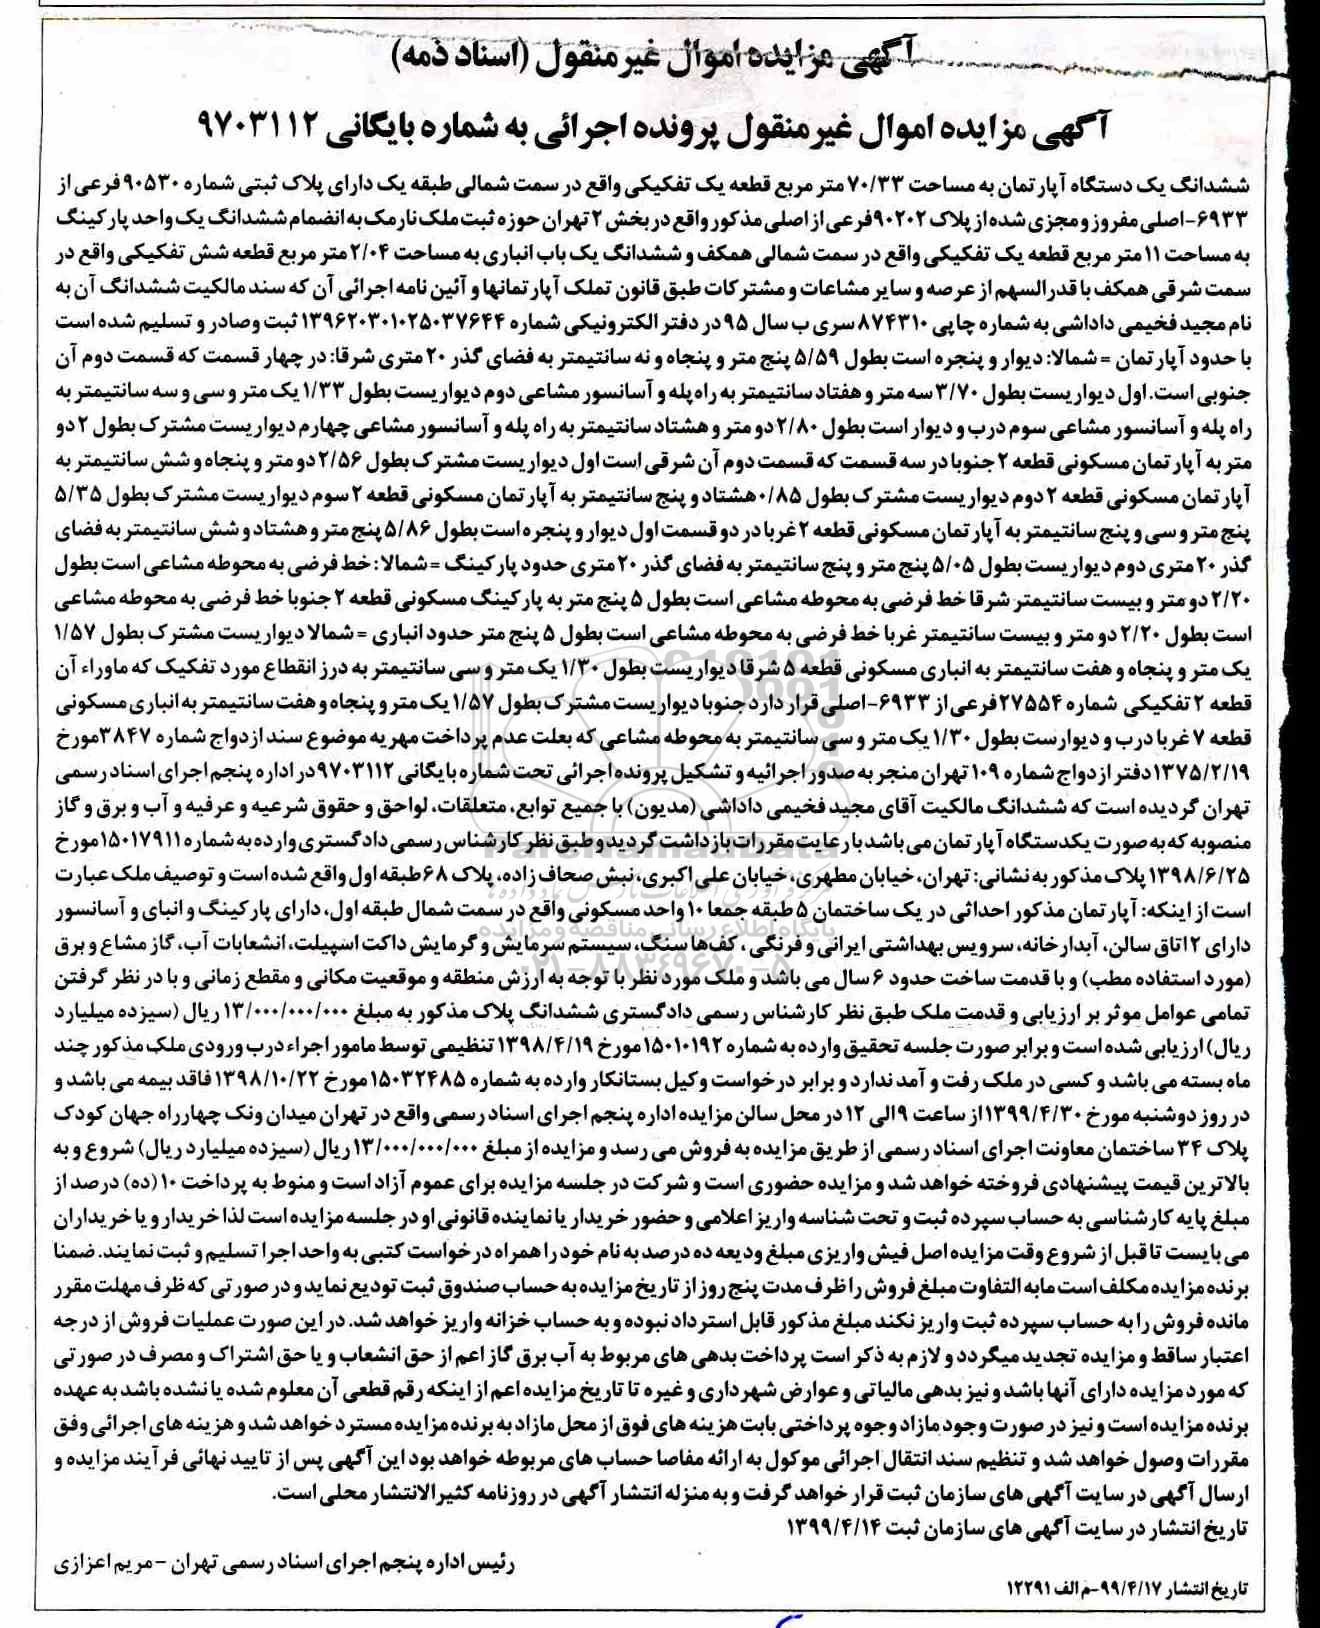 آگهی مزایده اموال غیر منقول (اسناد ذمه)
آگهی مزایده اموال غیر منقول پرونده اجرائی به شماره بایگانی ۹۷۰۳۱۱۲
ششدانگ یک دستگاه آپارتمان به مساحت ۷۰/۳۳ متر مربع قطعه یک تفکیکی واقع در سمت شمالی طبقه یک دارای پلاک ثبتی شماره ۹۰۵۳۰ فرعی از
۶۹۳۳-اصلی مفروز و مجزی شده از پلاک ۹۰۲۰۲ فرعی از اصلی مذکور واقع در بخش ۲ تهران حوزه ثبت ملک نارمک به انضمام ششدانگ یک واحد پارکینگ
به مساحت ۱۱ متر مربع قطعه یک تفکیکی واقع در سمت شمالی همکف و ششدانگ یک باب انباری به مساحت ۲/۰۴ متر مربع قطعه شش تفکیکی واقع در
سمت شرقی همکف با قدرالسهم از عرصه و سایر مشاعات و مشترکات طبق قانون تملک آپارتمانها و آئین نامه اجرائی آن که سند مالکیت ششدانگ آن به
نام مجید فخیمی داداشی به شماره چاپی ۸۷۴۳۱۰ سری ب سال ۹۵ در دفتر الکترونیکی شماره ۱۳۹۶۲۰۳۰۱۰۲۵۰۳۷۶۴۴ ثبت وصادر و تسلیم شده است
با حدود آپارتمان = شمالا: دیوار و پنجره است بطول ۵/۵۹ پنج متر و پنجاه و نه سانتیمتر به فضای گذر ۲۰ متری شرقا: در چهار قسمت که قسمت دوم آن
جنوبی است. اول دیواریست بطول ۳/۷۰ سه متر و هفتاد سانتیمتر به راه پله و آسانسور مشاعی دوم دیواریست بطول ۱/۳۳ یک متر و سی و سه سانتیمتر به
راه پله و آسانسور مشاعی سوم درب و دیوار است بطول ۲/۸۰ دو متر و هشتاد سانتیمتر به راه پله و آسانسور مشاعی چهارم دیواریست مشترک بطول ۲ دو
متر به آپارتمان مسکونی قطعه ۲ جنوبا در سه قسمت که قسمت دوم آن شرقی است اول دیواریست مشترک بطول ۲/۵۶ دو متر و پنجاه و شش سانتیمتر به
آپارتمان مسکونی قطعه ۲ دوم دیواریست مشترک بطول ۰/۸۵ هشتاد و پنج سانتیمتر به آپارتمان مسکونی قطعه ۲ سوم دیواریست مشترک بطول ۵/۳۵
پنج متر و سی و پنج سانتیمتر به آپارتمان مسکونی قطعه ۲ غربا در دو قسمت اول دیوار و پنجره است بطول ۵/۸۶ پنج متر و هشتاد و شش سانتیمتر به فضای
گذر ۲۰ متری دوم دیواریست بطول ۵/۰۵ پنج متر و پنج سانتیمتر به فضای گذر ۲۰ متری حدود پارکینگ = شمالا: خط فرضی به محوطه مشاعی است بطول
۲/۲۰ دو متر و بیست سانتیمتر شرقا خط فرضی به محوطه مشاعی است بطول ۵ پنج متر به پارکینگ مسکونی قطعه ۲ جنوبا خط فرضی به محوطه مشاعی
است بطول ۲/۲۰ دو متر و بیست سانتیمتر غربا خط فرضی به محوطه مشاعی است بطول ۵ پنج متر حدود انباری = شمالا دیواریست مشترک بطول ۱/۵۷
یک متر و پنجاه و هفت سانتیمتر به انباری مسکونی قطعه ۵ شرقا دیواریست بطول ۱/۳۰ یک متر و سی سانتیمتر به درز انقطاع مورد تفکیک که ماوراء آن
قطعه ۲ تفکیکی شماره ۲۷۵۵۴ فرعی از ۶۹۳۳-اصلی قرار دارد جنوبا دیواریست مشترک بطول ۱/۵۷ یک متر و پنجاه و هفت سانتیمتر به انباری مسکونی
قطعه ۷ غربا درب و دیوارست بطول ۱/۳۰ یک متر و سی سانتیمتر به محوطه مشاعی که بعلت عدم پرداخت مهریه موضوع سند ازدواج شماره ۳۸۴۷ مورخ
۱۳۷۵/۲/۱۹ دفتر ازدواج شماره ۱۰۹ تهران منجر به صدور اجرائیه و تشکیل پرونده اجرائی تحت شماره بایگانی ۹۷۰۳۱۱۲ در اداره پنجم اجرای اسناد رسمی
تهران گردیده است که ششدانگ مالکیت آقای مجید فخیمی داداشی (مدیون) با جمیع توابع، متعلقات، لواحق و حقوق شرعیه و عرفیه و آب و برق و گاز
منصوبه که به صورت یکدستگاه آپارتمان می باشد با رعایت مقررات بازداشت گردید و طبق نظر کارشناس رسمی دادگستری وارده به شماره ۱۵۰۱۷۹۱۱ مورخ
۱۳۹۸/۶/۲۵ پلاک مذکور به نشانی: تهران، خیابان مطهری، خیابان علی اکبری، نبش صحاف زاده، پلاک ۶۸ طبقه اول واقع شده است و توصیف ملک عبارت
است از اینکه: آپارتمان مذکور احداثی در یک ساختمان ۵ طبقه جمعا ۱۰ واحد مسکونی واقع در سمت شمال طبقه اول، دارای پارکینگ و انبای و آسانسور
دارای ۲ اتاق سالن، آبدارخانه، سرویس بهداشتی ایرانی و فرنگی، کف‌ها سنگ، سیستم سرمایش و گرمایش داکت اسپیلت، انشعابات آب، گاز مشاع و برق
(مورد استفاده مطب) و با قدمت ساخت حدود ۶ سال می باشد و ملک مورد نظر با توجه به ارزش منطقه و موقعیت مکانی و مقطع زمانی و با در نظر گرفتن
تمامی عوامل موثر بر ارزیابی و قدمت ملک طبق نظر کارشناس رسمی دادگستری ششدانگ پلاک مذکور به مبلغ ۱۳/۰۰۰/۰۰۰/۰۰۰ ریال (سیزده میلیارد
ریال) ارزیابی شده است و برابر صورت جلسه تحقیق وارده به شماره ۱۵۰۱۰۱۹۲ مورخ ۱۳۹۸/۴/۱۹ تنظیمی توسط مامور اجراء درب ورودی ملک مذکور چند
ماه بسته می باشد و کسی در ملک رفت و آمد ندارد و برابر درخواست وکیل بستانکار وارده به شماره ۱۵۰۳۲۴۸۵ مورخ ۱۳۹۸/۱۰/۲۲ فاقد بیمه می باشد و
در روز دوشنبه مورخ ۱۳۹۹/۴/۳۰ از ساعت ۹ الی ۱۲ در محل سالن مزایده اداره پنجم اجرای اسناد رسمی واقع در تهران میدان ونک چهارراه جهان کودک
پلاک ۳۴ ساختمان معاونت اجرای اسناد رسمی از طریق مزایده به فروش می رسد و مزایده از مبلغ ۱۳/۰۰۰/۰۰۰/۰۰۰ ریال (سیزده میلیارد ریال) شروع و به
بالاترین قیمت پیشنهادی فروخته خواهد شد و مزایده حضوری است و شرکت در جلسه مزایده برای عموم آزاد است و منوط به پرداخت ۱۰ (ده) درصد از
مبلغ پایه کارشناسی به حساب سپرده ثبت و تحت شناسه واریز اعلامی و حضور خریدار یا نماینده قانونی او در جلسه مزایده است لذا خریدار و یا خریداران
می بایست تا قبل از شروع وقت مزایده اصل فیش واریزی مبلغ ودیعه ده درصد به نام خود را همراه درخواست کتبی به واحد اجرا تسلیم و ثبت نمایند. ضمنا
برنده مزایده مکلف است مابه التفاوت مبلغ فروش را ظرف مدت پنج روز از تاریخ مزایده به حساب صندوق ثبت تودیع نماید و در صورتی که ظرف مهلت مقرر
مانده فروش را به حساب سپرده ثبت واریز نکند مبلغ مذکور قابل استرداد نبوده و به حساب خزانه واریز خواهد شد. در این صورت عملیات فروش از درجه
اعتبار ساقط و مزایده تجدید میگردد و لازم به ذکر است پرداخت بدهی های مربوط به آب برق گاز اعم از حق انشعاب و یا حق اشتراک و مصرف در صورتی
که مورد مزایده دارای آنها باشد و نیز بدهی مالیاتی و عوارض شهرداری و غیره تا تاریخ مزایده اعم از اینکه رقم قطعی آن معلوم شده یا نشده باشد به عهده
برنده مزایده است و نیز در صورت وجود مازاد وجوه پرداختی بابت هزینه های فوق از محل مازاد به برنده مزایده مسترد خواهد شد و هزینه های اجرائی وفق
مقررات وصول خواهد شد و تنظیم سند انتقال اجرائی موکول به ارائه مفاصا حساب های مربوطه خواهد بود این آگهی پس از تایید نهائی فرآیند مزایده و
ارسال آگهی در سایت آگهی های سازمان ثبت قرار خواهد گرفت و به منزله انتشار آگهی در روزنامه کثیرالانتشار محلی است.
تاریخ انتشار در سایت آگهی های سازمان ثبت ۱۳۹۹/۴/۱۴
رئیس اداره پنجم اجرای اسناد رسمی تهران - مریم اعزازی
تاریخ انتشار ۹۹/۴/۱۷-م الف ۱۲۲۹۱
ParsNamadData
پایگاه اطلاع رسانی مناقصه و مزایده
۰۲۱-۸۸۳۴۹۶۷۰-۵